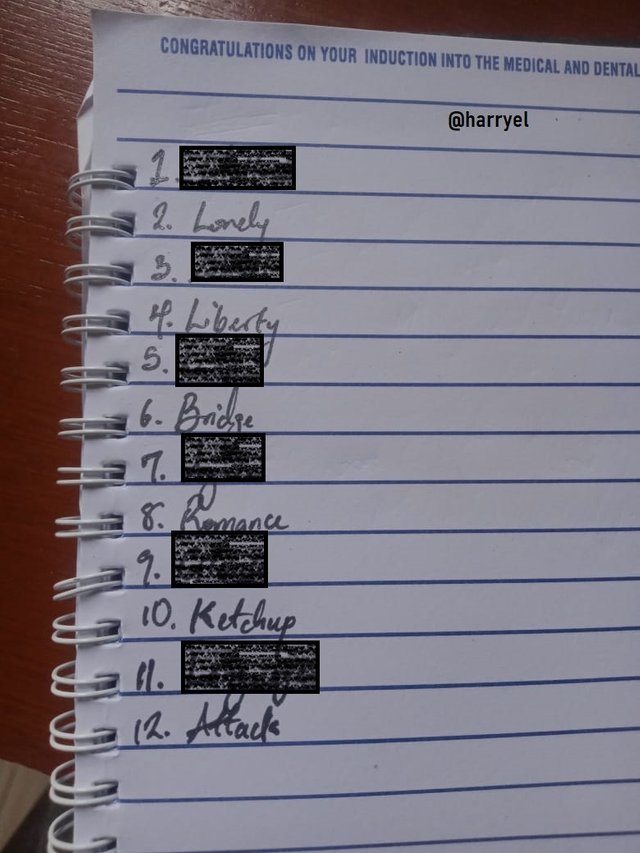 CONGRATULATIONS ON YOUR INDUCTION INTO THE MEDICAL AND DENTAL
@harryel
1.
2. Lonely
3.
4. Liberty
5.
6. Bridge
7.
8. Romance
9.
10. Ketchup
11.
12. Attack